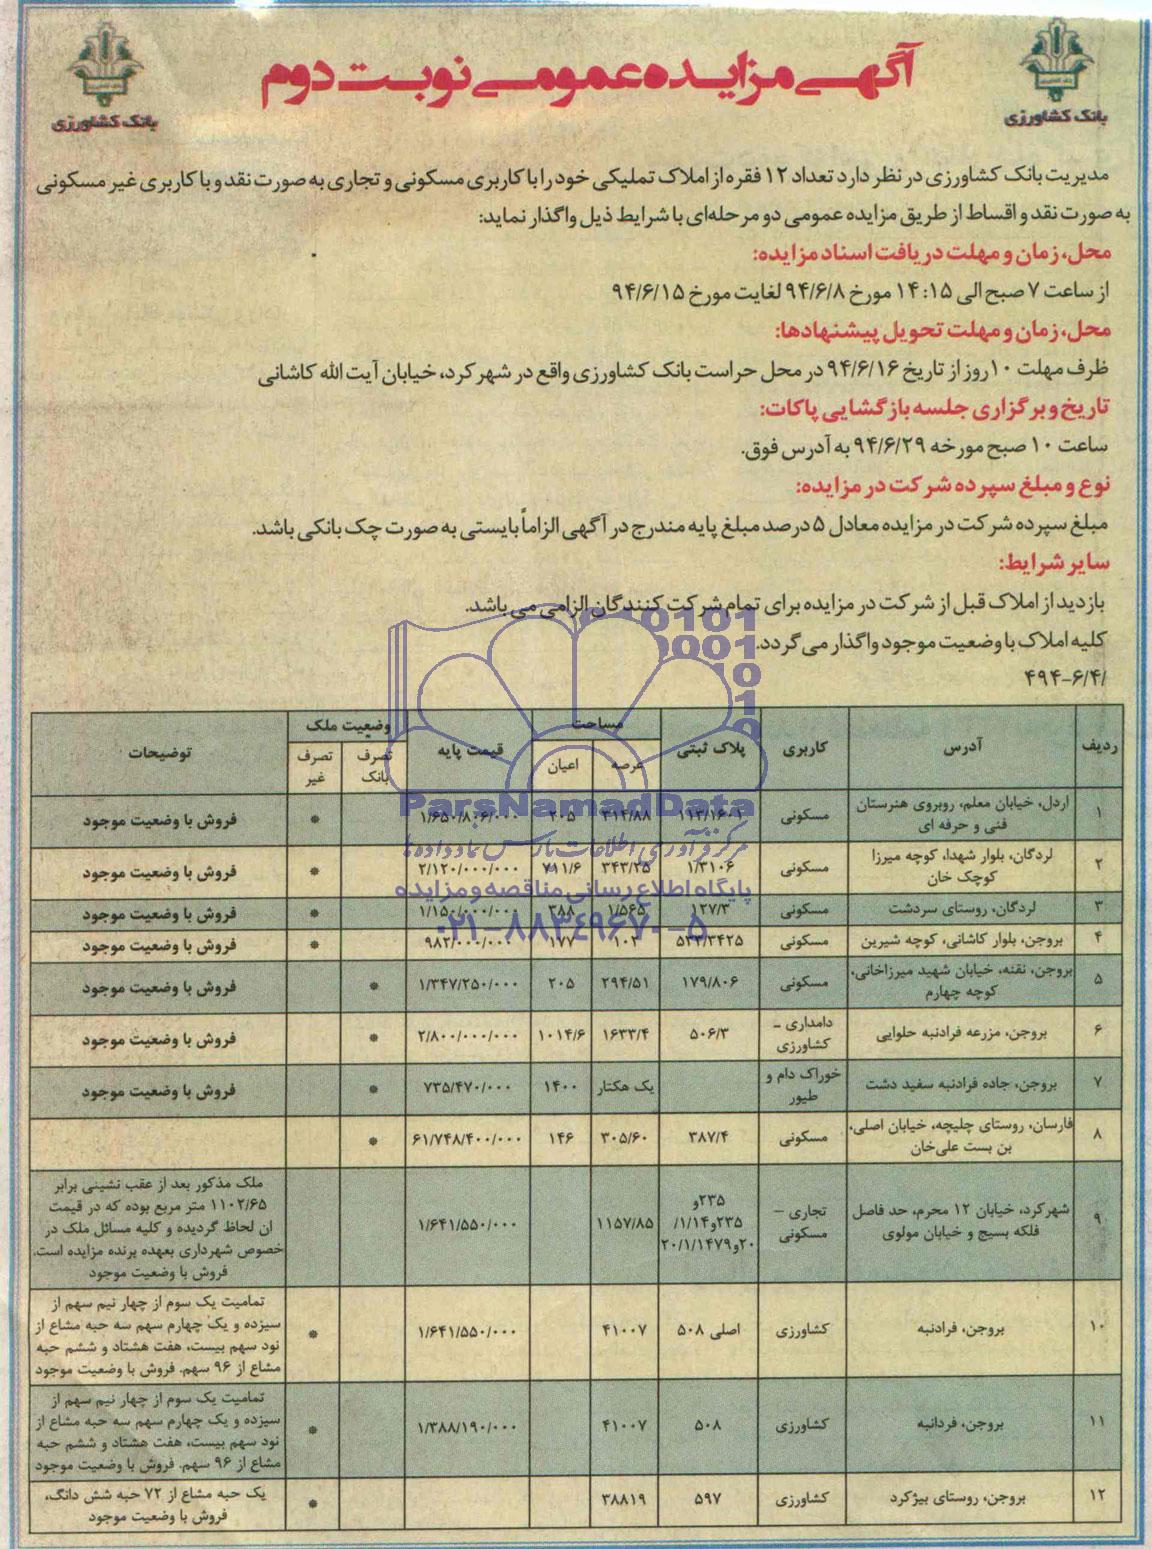 آگهی مزایده عمومی نوبت دوم
بانک کشاورزی
بانک کشاورزی
مدیریت بانک کشاورزی در نظر دارد تعداد ۱۲ فقره از املاک تملیکی خود را با کاربری مسکونی و تجاری به صورت نقد و با کاربری غیر مسکونی
به صورت نقد و اقساط از طریق مزایده عمومی دو مرحله‌ای با شرایط ذیل واگذار نماید:
محل، زمان و مهلت دریافت اسناد مزایده:
از ساعت ۷ صبح الی ۱۴:۱۵ مورخ ۹۴/۶/۸ لغایت مورخ ۹۴/۶/۱۵
محل، زمان و مهلت تحویل پیشنهادها:
ظرف مهلت ۱۰ روز از تاریخ ۹۴/۶/۱۶ در محل حراست بانک کشاورزی واقع در شهر کرد، خیابان آیت الله کاشانی
تاریخ و برگزاری جلسه بازگشایی پاکات:
ساعت ۱۰ صبح مورخه ۹۴/۶/۲۹ به آدرس فوق.
نوع و مبلغ سپرده شرکت در مزایده:
مبلغ سپرده شرکت در مزایده معادل ۵ درصد مبلغ پایه مندرج در آگهی الزاماً بایستی به صورت چک بانکی باشد.
سایر شرایط:
بازدید از املاک قبل از شرکت در مزایده برای تمام شرکت کنندگان الزامی می باشد.
کلیه املاک با وضعیت موجود واگذار می گردد.
/۴۹۴-۶/۴
ردیف آدرس کاربری پلاک ثبتی مساحت قیمت پایه وضعیت ملک توضیحات
عرصه اعیان تصرف بانک تصرف غیر
۱ اردل، خیابان معلم، روبروی هنرستان فنی و حرفه ای مسکونی ۱۱۳/۱۶۰۱ ۳۱۴/۸۸ ۲۰۵ ۱/۶۵۰/۸۰۶/۰۰۰ * فروش با وضعیت موجود
۲ لردگان، بلوار شهدا، کوچه میرزا کوچک خان مسکونی ۱/۳۱۰۶ ۳۴۳/۲۵ ۷۱۱/۶ ۲/۱۲۰/۰۰۰/۰۰۰ * فروش با وضعیت موجود
۳ لردگان، روستای سردشت مسکونی ۱۲۷/۳ ۱/۵۶۵ ۳۸۸ ۱/۱۵۰/۰۰۰/۰۰۰ * فروش با وضعیت موجود
۴ بروجن، بلوار کاشانی، کوچه شیرین مسکونی ۵۳۳/۳۴۲۵ ۱۰۲ ۱۷۷ ۹۸۲/۰۰۰/۰۰۰ * فروش با وضعیت موجود
۵ بروجن، نقنه، خیابان شهید میرزاخانی، کوچه چهارم مسکونی ۱۷۹/۸۰۶ ۲۹۴/۵۱ ۲۰۵ ۱/۳۴۷/۲۵۰/۰۰۰ * فروش با وضعیت موجود
۶ بروجن، مزرعه فرادنبه حلوایی دامداری - کشاورزی ۵۰۶/۳ ۱۶۳۳/۴ ۱۰۱۴/۶ ۲/۸۰۰/۰۰۰/۰۰۰ * فروش با وضعیت موجود
۷ بروجن، جاده فرادنبه سفید دشت خوراک دام و طیور یک هکتار ۱۴۰۰ ۷۳۵/۴۷۰/۰۰۰ * فروش با وضعیت موجود
۸ فارسان، روستای چلیچه، خیابان اصلی، بن بست علی‌خان مسکونی ۳۸۷/۴ ۳۰۵/۶۰ ۱۴۶ ۶۱/۷۴۸/۴۰۰/۰۰۰ *
۹ شهرکرد، خیابان ۱۲ محرم، حد فاصل فلکه بسیج و خیابان مولوی تجاری - مسکونی ۲۳۵و ۲۳۵و۱/۱۴/ ۲۰و۲۰/۱/۱۴۷۹ ۱۱۵۷/۸۵ ۱/۶۴۱/۵۵۰/۰۰۰ ملک مذکور بعد از عقب نشینی برابر
۱۱۰۲/۶۵ متر مربع بوده که در قیمت
ان لحاظ گردیده و کلیه مسائل ملک در
خصوص شهرداری بعهده برنده مزایده است.
فروش با وضعیت موجود
۱۰ بروجن، فرادنبه کشاورزی ۵۰۸ اصلی ۴۱۰۰۷ ۱/۶۴۱/۵۵۰/۰۰۰ * تمامیت یک سوم از چهار نیم سهم از
سیزده و یک چهارم سهم سه حبه مشاع از
نود سهم بیست، هفت هشتاد و ششم حبه
مشاع از ۹۶ سهم. فروش با وضعیت موجود
۱۱ بروجن، فردانبه کشاورزی ۵۰۸ ۴۱۰۰۷ ۱/۳۸۸/۱۹۰/۰۰۰ * تمامیت یک سوم از چهار نیم سهم از
سیزده و یک چهارم سهم سه حبه مشاع از
نود سهم بیست، هفت هشتاد و ششم حبه
مشاع از ۹۶ سهم. فروش با وضعیت موجود
۱۲ بروجن، روستای بیژکرد کشاورزی ۵۹۷ ۳۸۸۱۹ * یک حبه مشاع از ۷۲ حبه شش دانگ،
فروش با وضعیت موجود
ParsNamadData
مرکز فرآوری اطلاعات پارس نماد داده ها
پایگاه اطلاع رسانی مناقصه و مزایده
۰۲۱-۸۸۳۴۹۶۷۰-۵